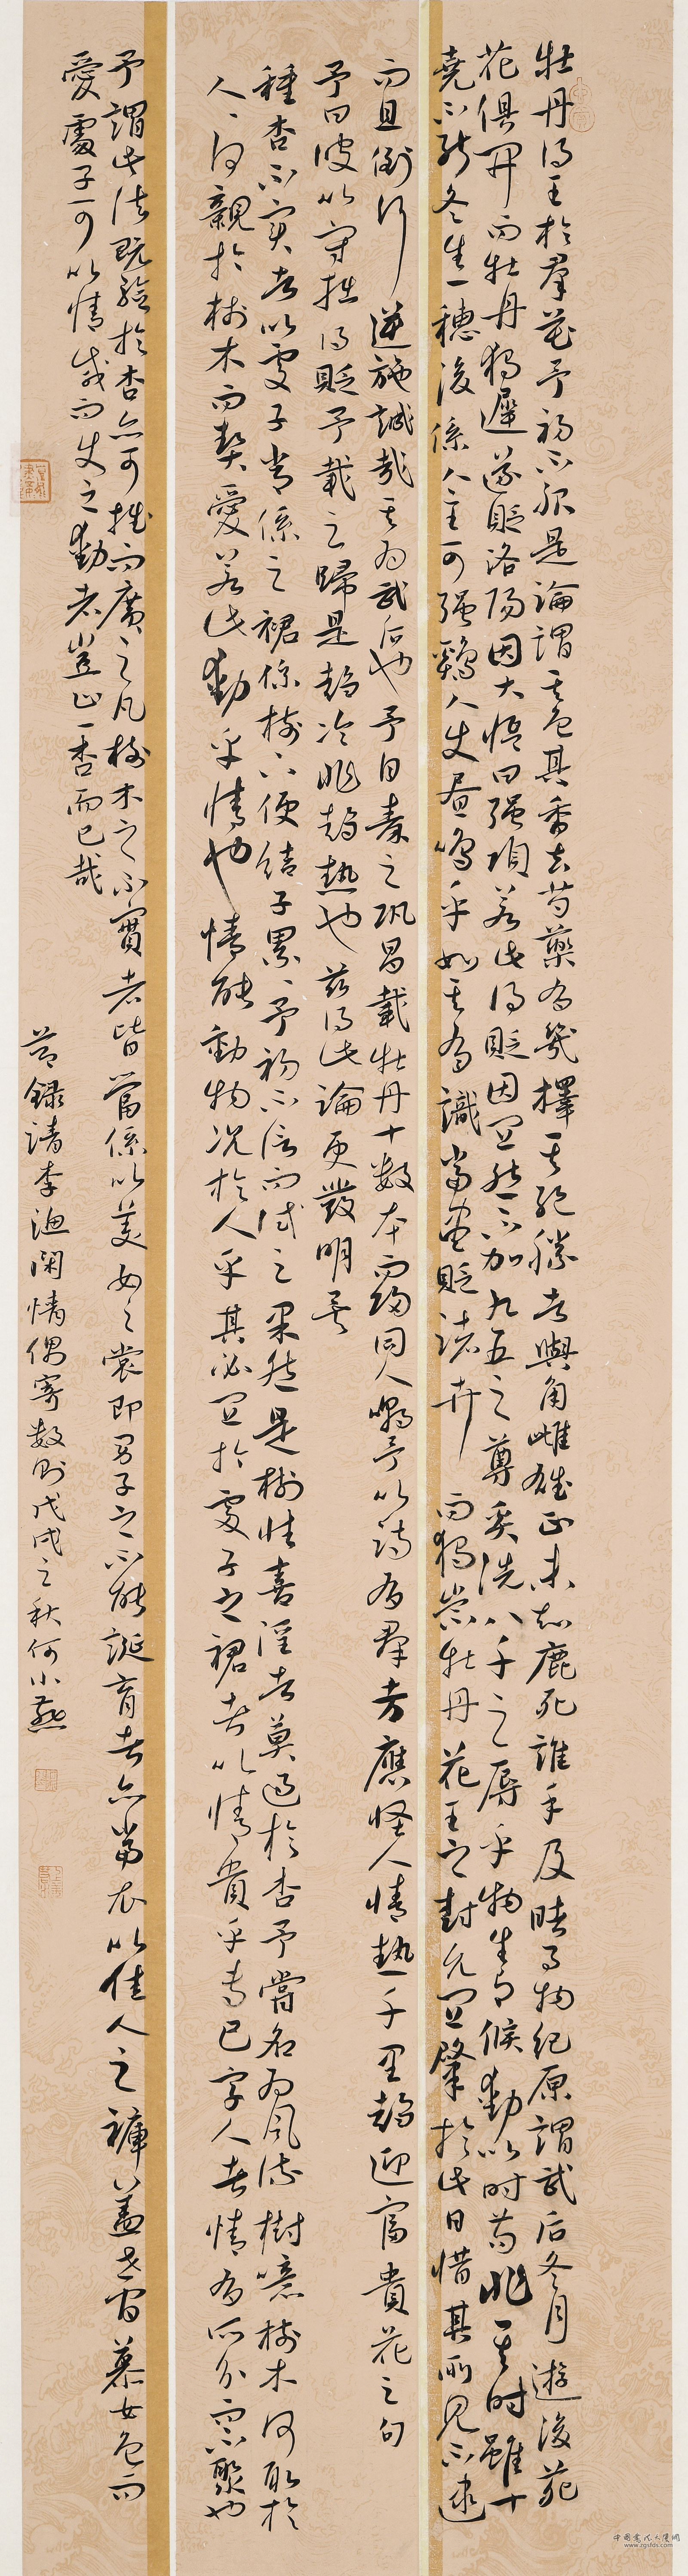 牡丹得王於群花予初不服是論謂其色其香去芍藥有幾擇其絕勝者與角雌雄正未知鹿死誰手及睹事物紀原謂武后冬月遊後苑
花俱開而牡丹獨遲遂貶洛陽因大悟曰强項若此得貶固宜然不加九五之尊奚洗八千之辱乎物生有候動以時苟非其時雖十
堯不能冬生一穗後係人主可强雞人使晝鳴乎如其有識當盡貶諸卉而獨崇牡丹花王之封允宜肇於此日惜其所見不逮
而且倒行逆施誠哉其為武后也予自秦之鞏昌載牡丹十數本而歸同人嘲予以詩有群芳應怪人情熱千里趨迎富貴花之句
予曰彼以守拙得貶予載之歸是趨冷非趨熱也兹得此論更發明矣
種杏不實者以處子常係之裙係樹上便結子累累予初不信而試之果然是樹性喜淫者莫過於杏予嘗名為風流樹噫樹木何取於
人人何親於樹木而契愛若此動乎情也情能動物况於人乎其必宜於處子之裙者以情貴乎專已字人者情有所分而不聚也
予謂此法既驗於杏亦可推而廣之凡樹木之不實者皆當係以美女之裳即男子之不能誕育者亦當衣以佳人之褲蓋世間慕女色而
愛處子可以情感而使之動者豈止一杏而已哉
節錄清李漁閑情偶寄數則戊戌之秋何小燕
中国书法大汉网
www.zgsfds.com